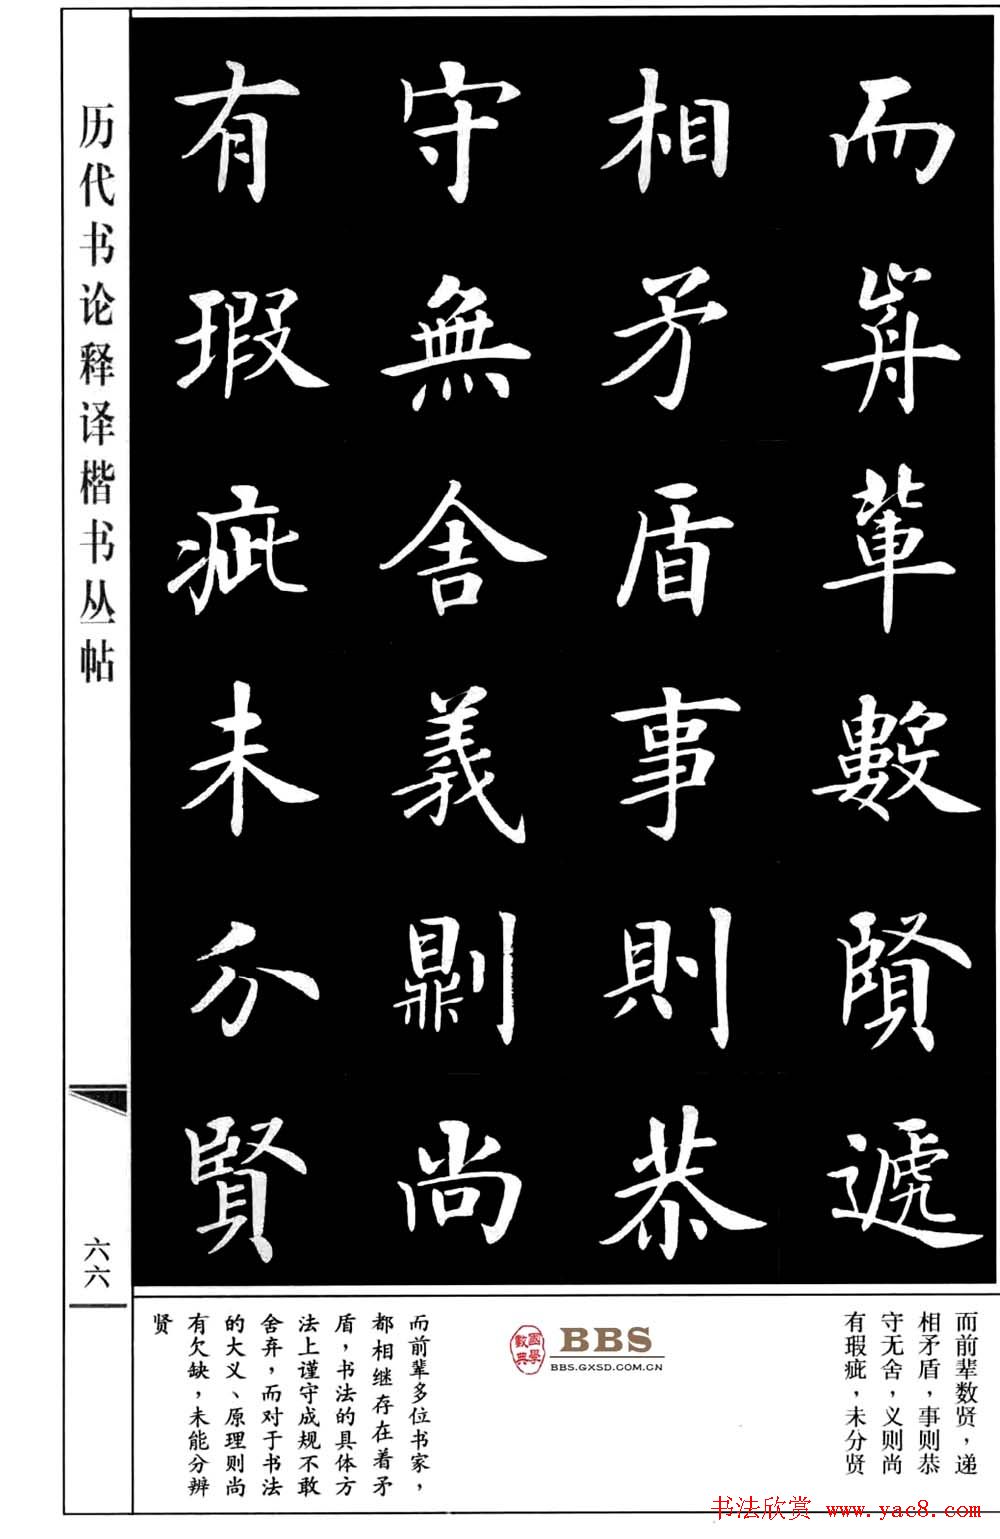 而歬輩數賢遞
相矛盾事則恭
守無舍義劓尚
有瑕疵未分賢
历代书论释译楷书丛帖
六六
而前辈数贤，递
相矛盾，事则恭
守无舍，义则尚
有瑕疵，未分贤
BBS
BBS.GXSD.COM.CN
而前辈多位书家，
都相继存在着矛
盾，书法的具体方
法上谨守成规不敢
舍弃，而对于书法
的大义、原理则尚
有欠缺，未能分辨
贤
书法欣赏 www.yac8.com